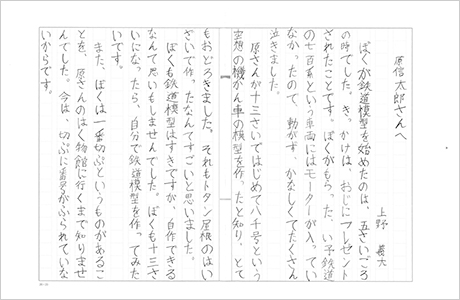 原信太郎さんへ
上野 義大
ぼくが鉄道模型を始めたのは、五さいごろ
の時でした。きっかけは、おじにプレゼント
されたことです。ぼくがもらった、い予鉄道
の七百系という車両にはモーターが入ってい
なかったので、動かず、かなしくてたくさん
泣きました。
原さんが十三さいではじめて八千号という
空想の機かん車の模型を作ったと知り、とて
もおどろきました。それもトタン屋根のはい
ざいで作ったなんてすごいと思いました。
ぼくも鉄道模型はすきですが、自作できる
なんて思いもしませんでした。ぼくも十三さ
いになったら、自分で鉄道模型を作ってみた
いです。
また、ぼくは一番切ぷというものがあるこ
とを、原さんのはく物館に行くまで知りませ
んでした。今は、切ぷに番号がふられていな
いからです。